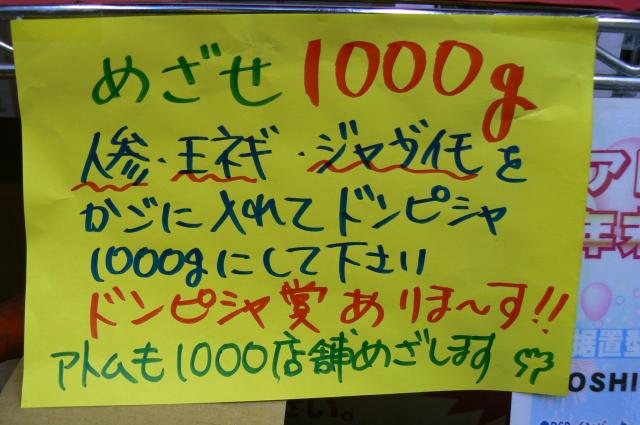 めざせ 1000g
人参・玉ネギ・ジャガイモを
かごに入れてドンピシャ
1000gにして下さい
ドンピシャ賞ありま〜す!!
アトムも1000店舗めざします
アト
年末
据置
OSHI
い。